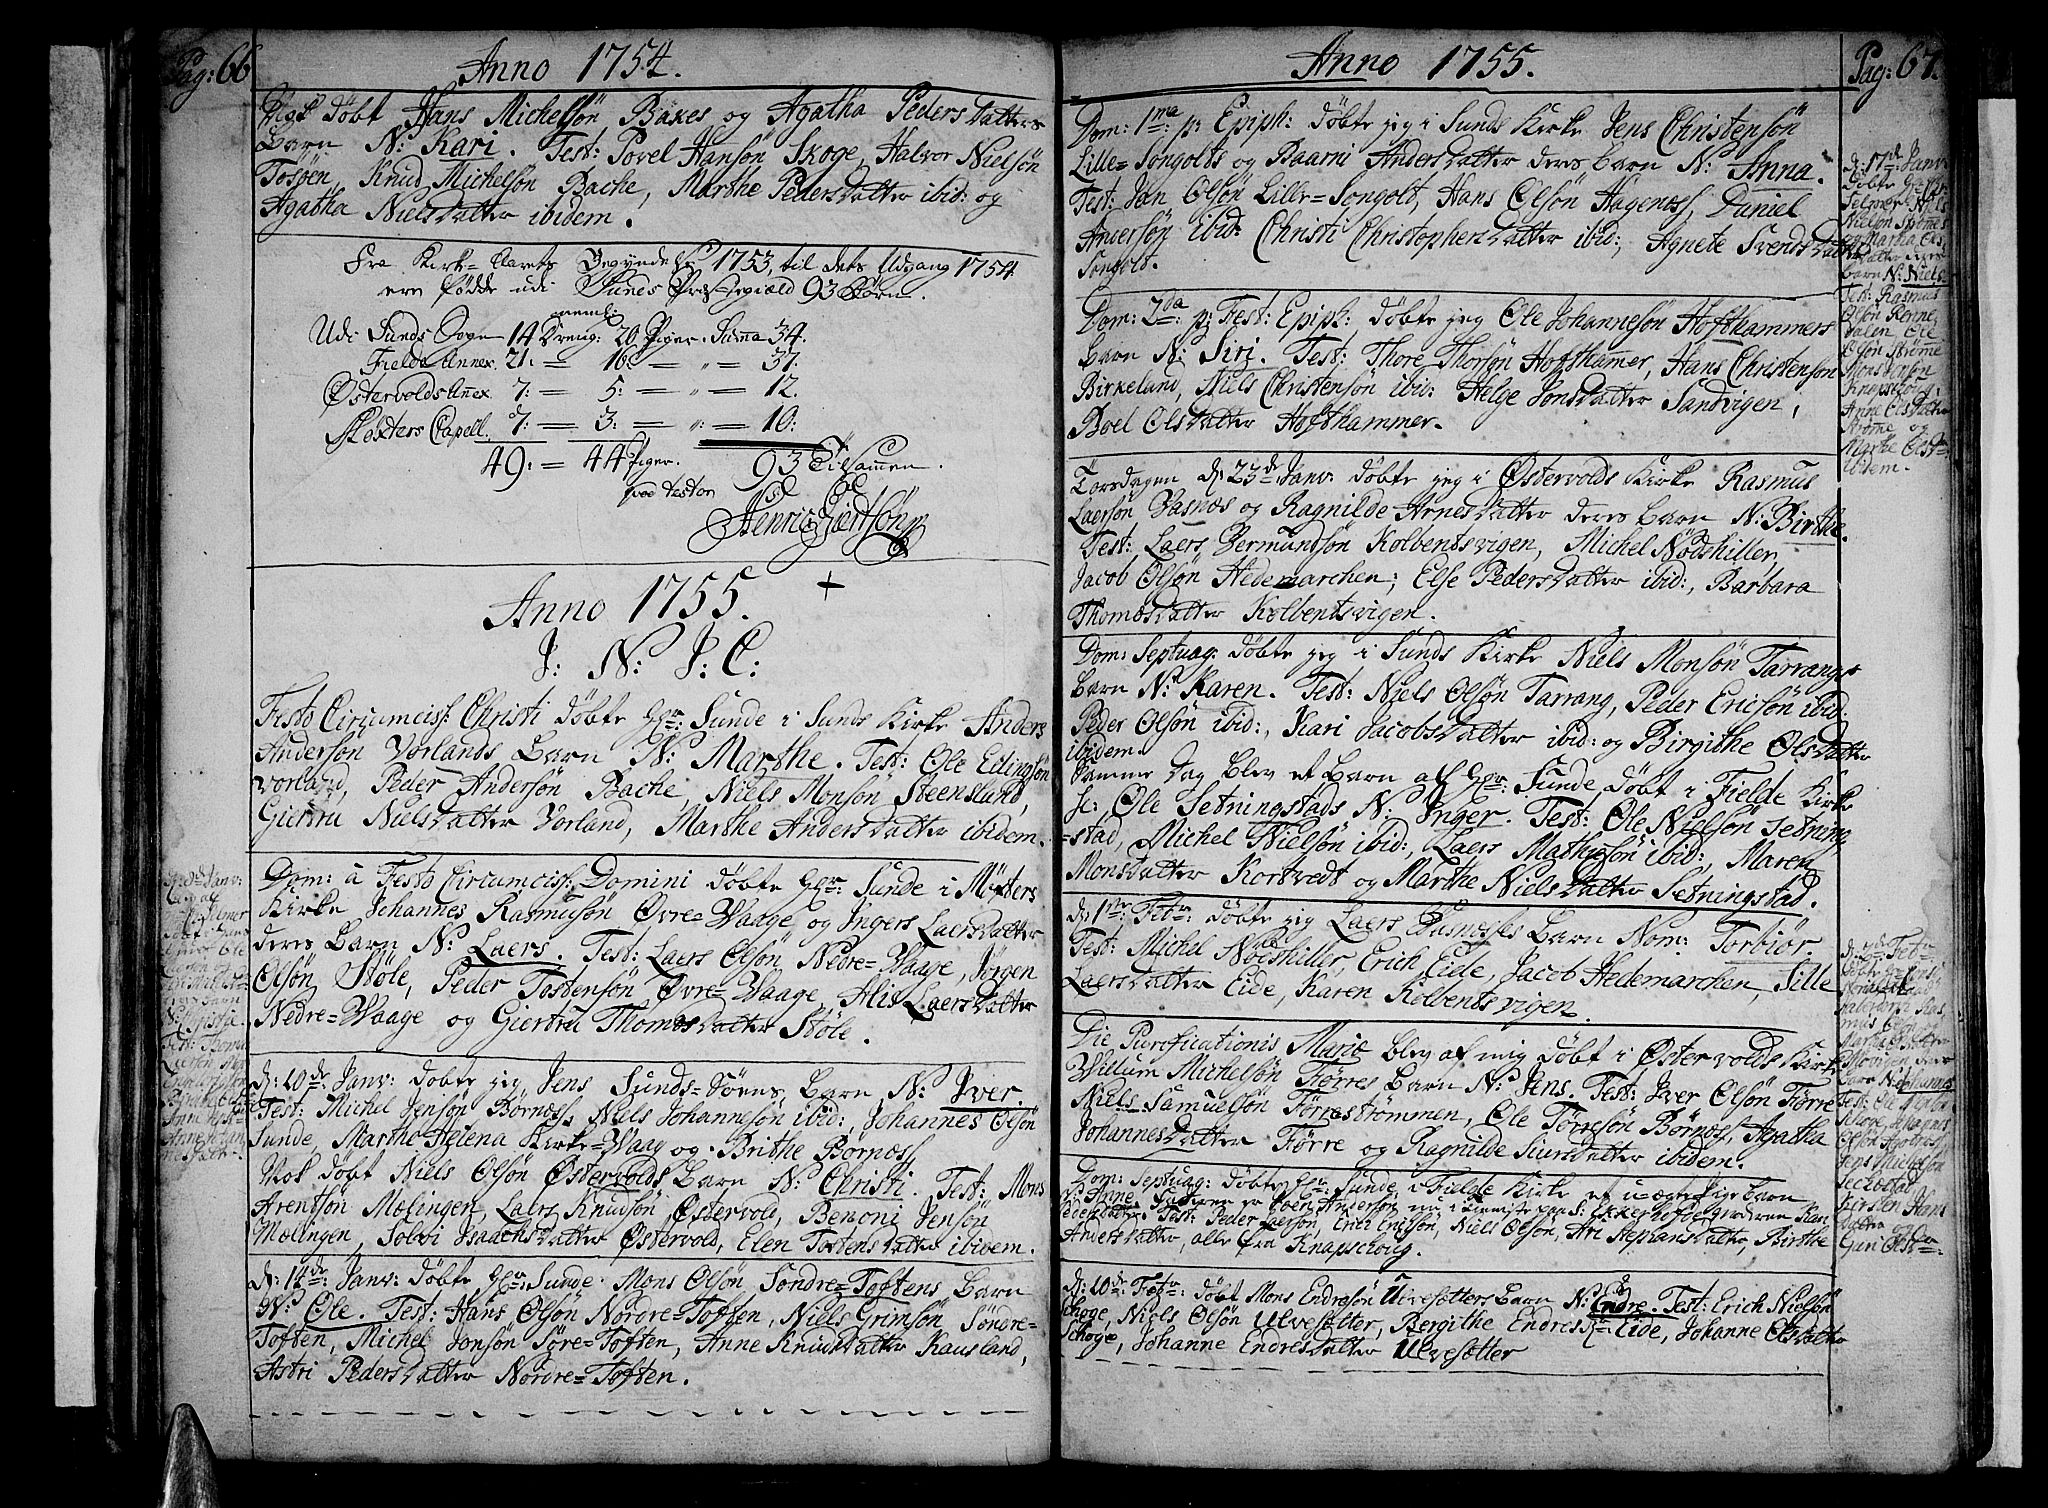 Pag: 66
Anno 1754.
Nok døbt Hans Michelsön Bakes og Agatha Pedersdatters
Barn N: Kari. Test: Povel Hansön Skoge, Halvor Nielsön
Tösöen, Knud Michelsön Bache, Marthe Pedersdatter ibid: og
Agatha Nielsdatter ibidem.
Fra Kirke-Aarets Begyndelse 1753, til dets Udgang 1754
ere fødde udi Sunds Præstegield 93 Børn.
nemlig
Udi Sunds Sogn 14 Dreng: 20 Piger. Summa 34.
Fielde Annex 21: = 16: = " = 37.
Østervolds Annex 7: = 5: = " = 12.
Møxters Capell. 7: = 3: = " = 10:
49: = 44 Piger. 93 Tilsammen.
qvod testor
Henric Giertsön
Anno 1755.
J: N: J: C:
Festo Circumciss: Christi døbte Hr: Sunde i Sunds Kirke Anders
Andersön Vorlands Barn N: Marthe. Test: Ole Edlingsön
Vorland, Peder Andersön Bache, Niels Monsön Steensland,
Giertru Nielsdatter Vorland, Marthe Andersdatter ibidem.
Dom: à Festo Circumciss: Domini døbte Hr: Sunde i Møxters
Kirke Johannes Rasmusön Øvre=Waage og Ingers Laersdatter
deres Barn N: Laers. Test: Laers Olsön Nedre=Waage, Jørgen
Olsön Støle, Peder Tostensön Øvre=Waage, Alis Laersdatter
Nedre=Waage og Giertru Thomesdatter Støle.
d: 10de Janv: døbte jeg Jens Sunds=Sörens Barn N: Iver.
Test: Michel Jensön Börnæss, Niels Johannesön ibid:, Johannes Olsön
Sunde, Marthe Helena Kirke=Waag og Brithe Börnæss
Nok døbt Niels Olsön Østervolds Barn N: Christi. Test: Mons
Arentsön Mælingen, Laers Knudsön Østervold, Benoni Jensön
Mælingen, Solvi Isaachsdatter Østervold, Elen Tostensdatter ibidem.
d: 14de: Janv: døbte Hr: Sunde Mons Olsön Søndre=Toftens Barn
N: Ole. Test: Hans Olsön Nordre=Toften, Niels Grimsön Søndre=
Toften, Michel Jensön Søre=Toften, Anne Knudsdatter Kausland,
Astri Pedersdatter Nordre=Toften.
Pag: 67.
Anno 1755.
Dom: 1ma: p: Epiph: døbte jeg i Sunds Kirke Jens Christensön
Lille=Songolts og Baarni Andersdatter deres Barn N: Anna.
Test: Jan Olsön Lille=Songolt, Hans Olsön Hagenæss, Daniel
Andersön ibid: Christi Christophersdatter ibid:, Agnete Svendsdatter
Songolt.
Dom: 2da: p: Fest: Epiph: døbte jeg Ole Johannesön Hofthammers
Barn N: Siri. Test: Thore Thorsön Hofthammer, Hans Christensön
Birkeland, Niels Christensön ibid: Helge Jonsdatter Sandvigen,
Boel Olsdatter Hofthammer.
Torsdagen d: 23de Janv: døbte jeg i Østervolds Kirke Rasmus
Laersön Vasnæs og Ragnilde Arnesdatter deres Barn N: Birthe.
Test: Laers Bermundsön Kolbentsvigen, Michel Nødskiller,
Jacob Olsön Hedemarchen; Else Pedersdatter ibid:, Barbara
Thomesdatter Kolbentsvigen.
Dom: Septuag: døbte jeg i Sunds Kirke Niels Monsön Tarrangs
Barn N: Karen. Test: Niels Olsön Tarrang, Peder Ericsön ibid:
Peder Olsön ibid:, Kari Jacobsdatter ibid: og Birgithe Olsdatter
ibidem.
Samme Dag blev et Barn af Hr: Sunde døbt i Fielde Kirke
sc: Ole Setningstads N. Inger. Test: Ole Nielsön Setning
=stad, Michel Nielsön ibid:, Laers Mathiesön ibid:, Maren
Monsdatter Kortvedt og Marthe Nielsdatter Setningstad.
d: 1ste: Febr: døbte jeg Laers Vasnæsses Barn Nom: Torbiör.
Test: Michel Nödskiller, Erich Eide, Jacob Hedemarchen, Sille
Laersdatter Eide, Karen Kolbentsvigen.
Die Purificationis Mariæ blev af mig døbt i Østervolds Kirke
Willum Michelsön Førres Barn N: Jens. Test: Iver Olsön Førre
Niels Samuelsön Førreströmmen, Ole Törresön Börnæss, Agatha
Johannesdatter Førre og Ragnilde Siursdatter ibidem.
Dom: Septuag: døbte Hr: Sunde i Fielde Kirke et u=ægte Pige Barn
N: Anne.
Test: Peder Laersön, Erich Ericsön, Niels Olsön, Ari Stephansdatter, Birthe
Andersdatter, alle fra Knapschoug.
d: 10de: Febr: døbt Mons Endresön Ulvesætters Barn N: Endre. Test: Erich Nielsön
Schoge, Niels Olsön Ulvesætter, Bergithe Endresdr: Eide, Johanne Olsdatter
Schoge, Johanne Endresdatter Ulvesætter
d: 17de Janv:
døbte Hr:
Selmer Niels
Nielsön Strømes
og Martha Ols
datter deres
Barn N: Niels
Test: Rasmus
Olsön Rønne
dalen Ole
Olsön Strømme
Mons Iversön
Knapschoug,
Anne Olsdatter
Strømme og
Marthe Olsdr:
ibidem.